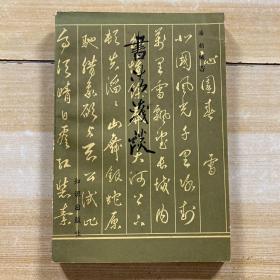 沁园春 雪
北国风光千里冰封
万里雪飘望长城内
大河上下
顿失滔滔山舞银蛇原
驰蜡象欲与天公试比
高须晴日看红装素
書法談